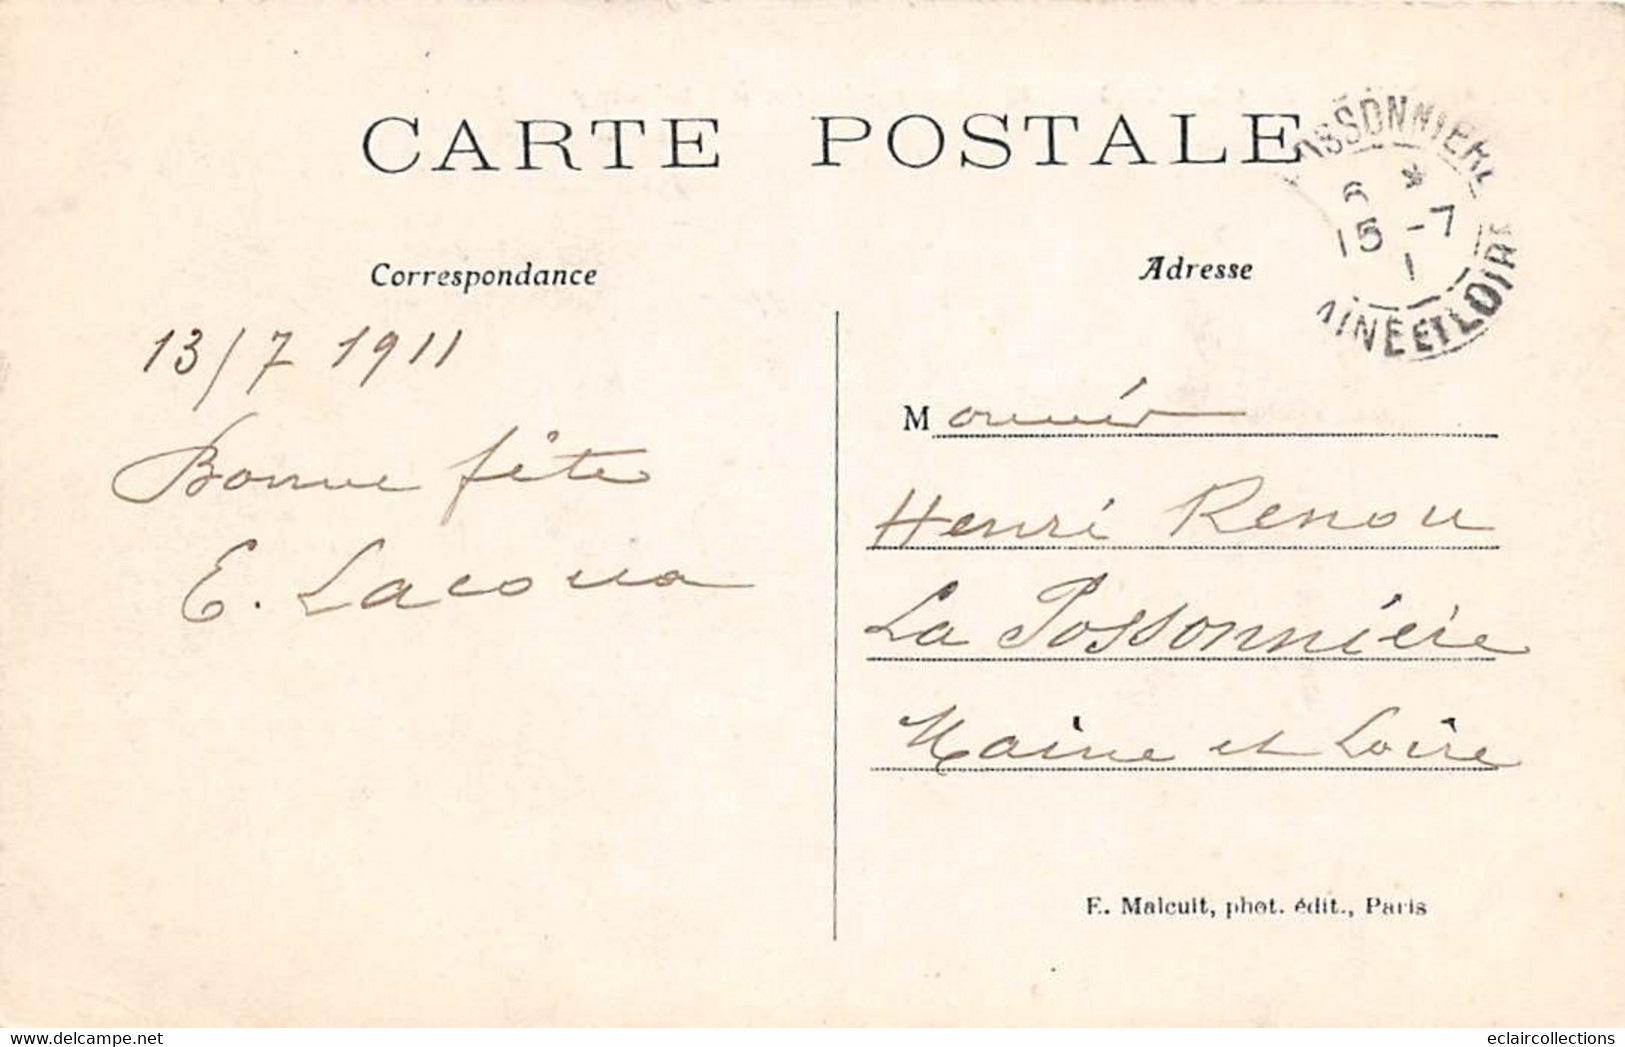 CARTE POSTALE
OSSONNIERE
6 *
15-7
1
MAINE ET LOIRE
Correspondance
Adresse
13/7 1911
Bonne fête
E. Lacoua
Monsieur
Henri Renou
La Possonnière
Maine et Loire
E. Malcuit, phot. édit., Paris
www.delcampe.net
eclaircollections